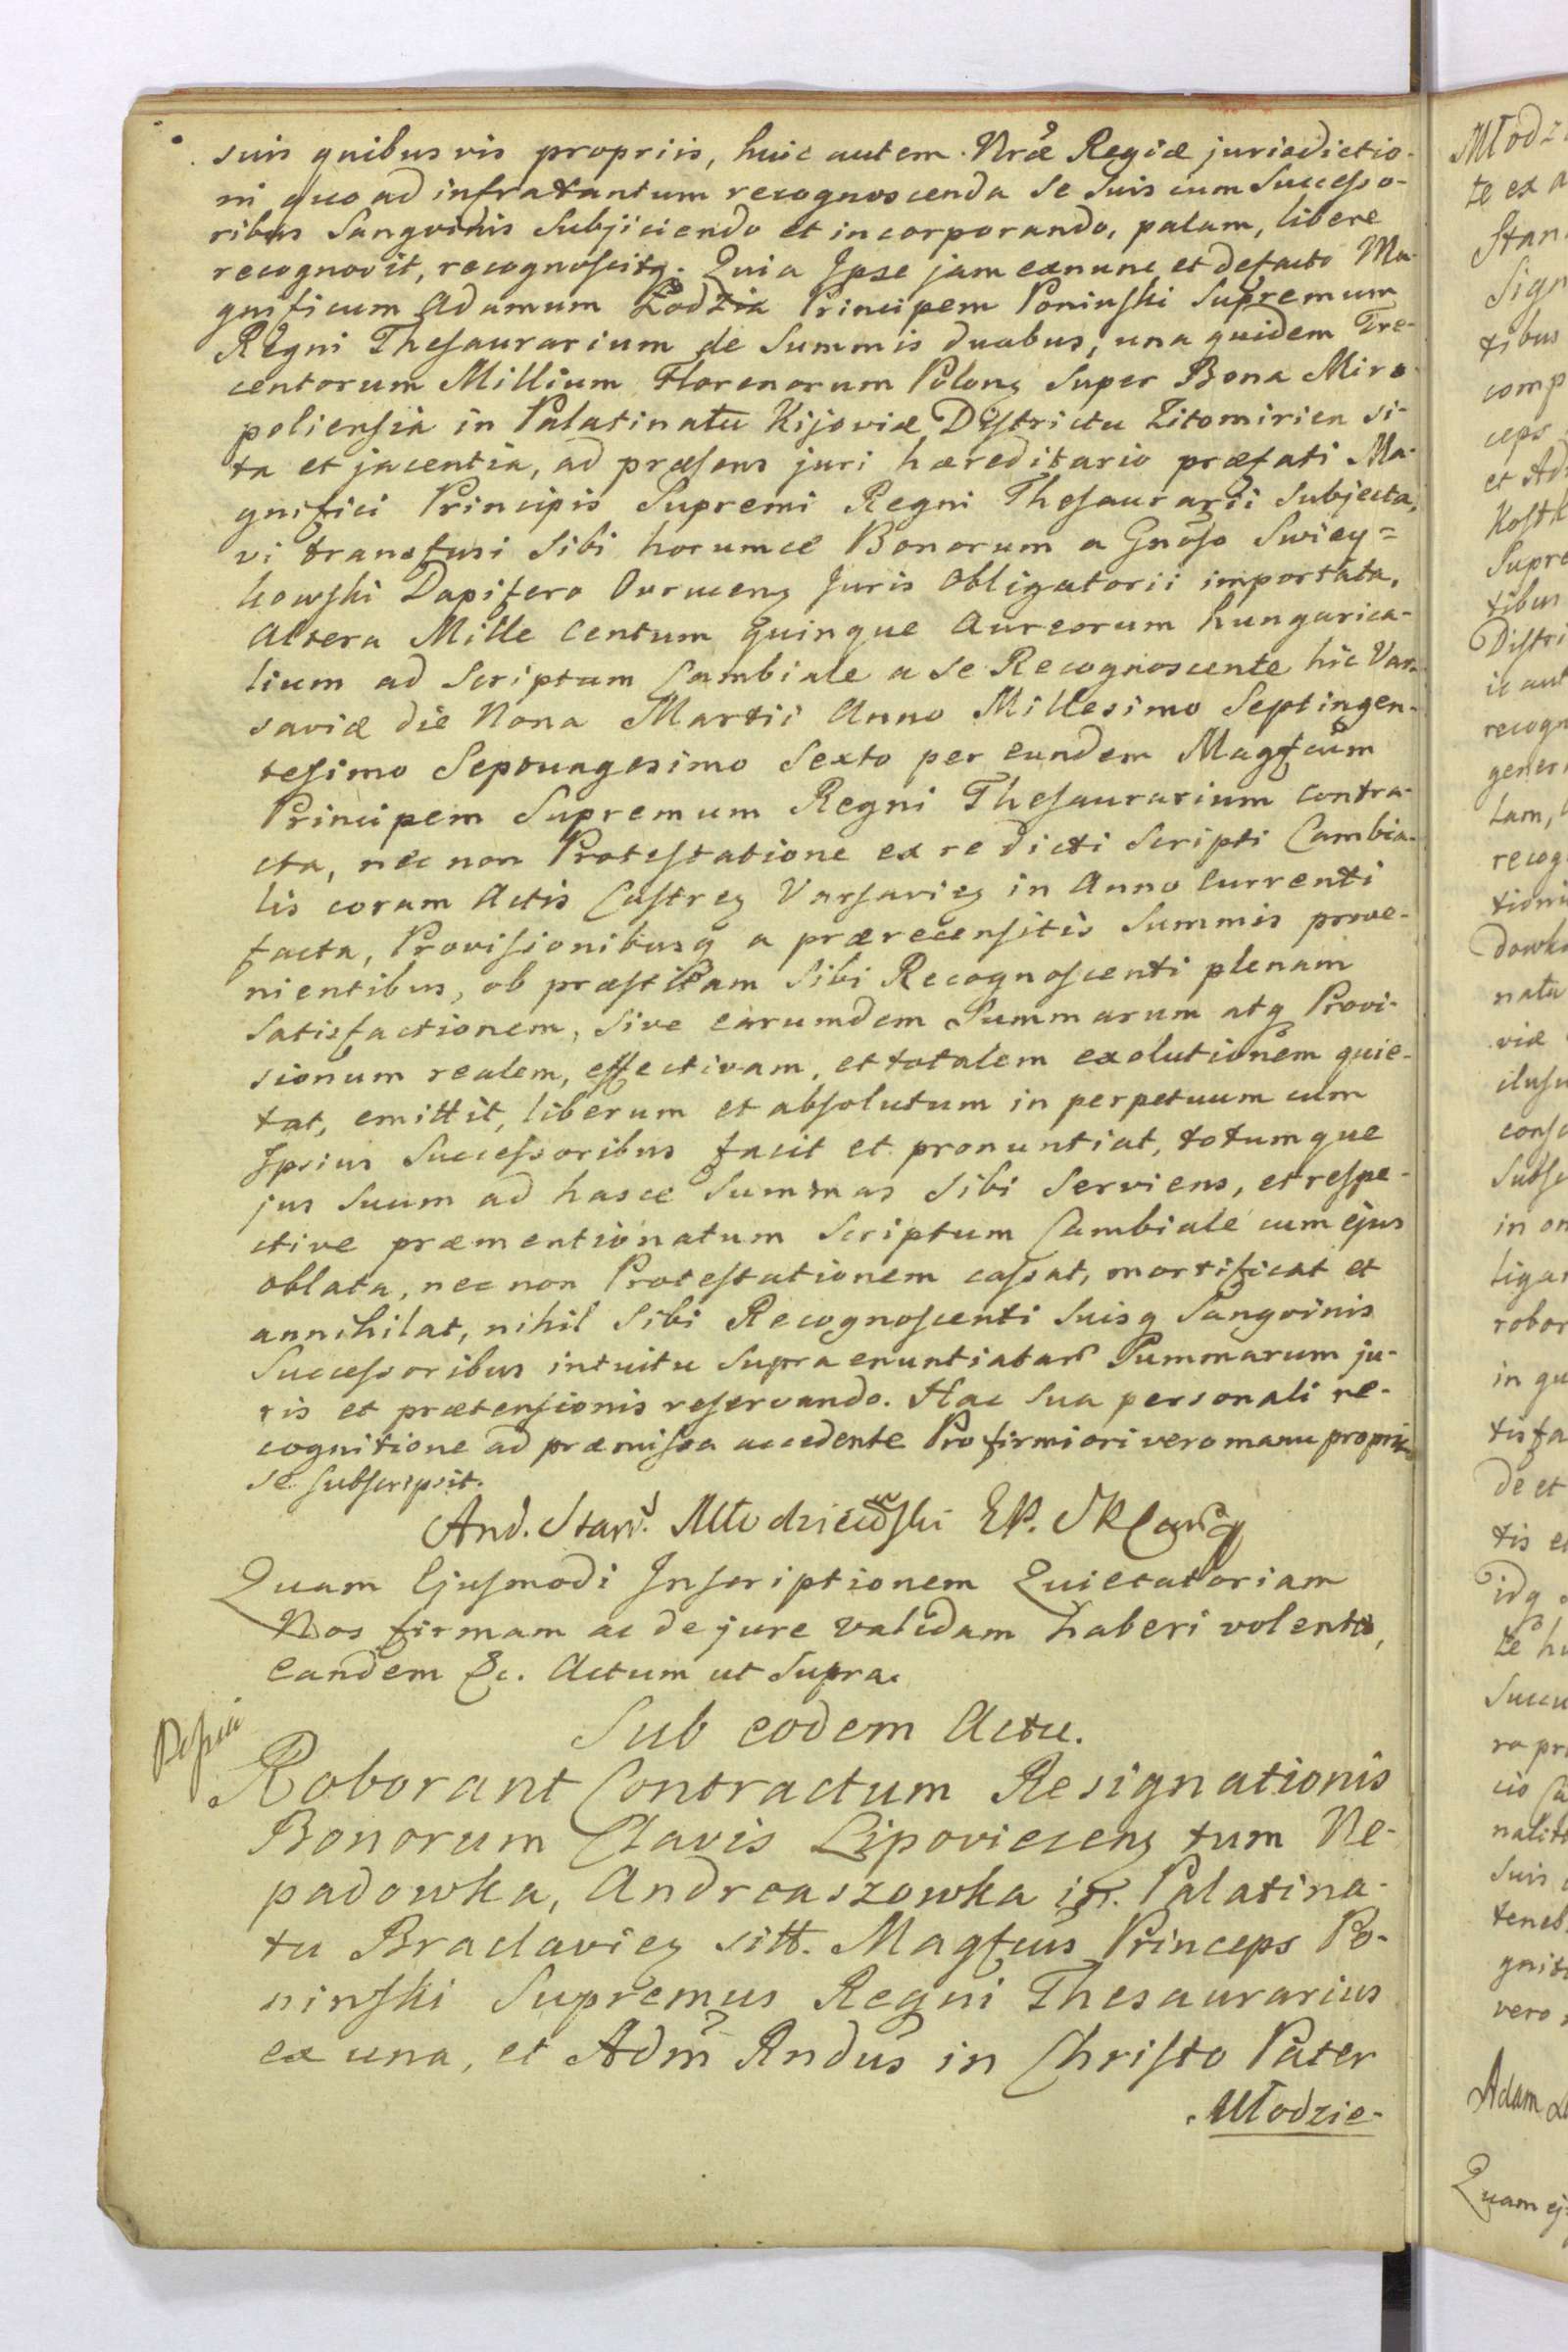 suis quibusvis propriis, huic autem Nræ Regiæ jurisdictio-
ni quo ad infratantum recognoscenda se suis cum Successo-
ribus Sangvinis Subjiciendo et incorporando, palam, libere
recognovit, recognoscitq. Quia Ipse jam exnunc et defacto Ma-
gnificum Adamum Łodzia Principem Poninski Supremum
Regni Thesaurarium de Summis duabus, una quidem Tre-
centorum Millium Florenorum Polonz Super Bona Miro-
poliensia in Palatinatu Kijoviæ Districtu Zitomirien si-
ta et jacentia, ad præsens juri hæreditario præfati Ma-
gnifici Principis Supremi Regni Thesaurarii Subjecta,
vi transfusi Sibi horumce Bonorum a Gnoso Swiey=
kowski Dapifero Owrucenz Juris Obligatorii importata,
Altera Mille Centum quinque Aureorum hungarica-
lium ad Scriptum Cambiale a se Recognoscente hic Var-
saviæ die Nona Martii Anno Millesimo Septingen-
tesimo Septuagesimo Sexto per eundem Magfcum
Principem Supremum Regni Thesaurarium contra-
cta, nec non Protestatione ex re dicti Scripti Cambia-
lis coram Actis Castrez Varsaviez in Anno Currenti
facta, Provisionibusq a prærecensitis Summis prove-
nientibus, ob præstitam Sibi Recognoscenti plenam
Satisfactionem, sive earumdem Summarum atq Provi-
sionum realem, effectivam, et totalem exolutionem quie-
tat, emittit, liberum et absolutum in perpetuum cum
Ipsius Successoribus facit et pronuntiat, totumque
jus suum ad hasce Summas Sibi Serviens, et respe-
ctive præmentionatum Scriptum Cambiale cum ejus
oblata, nec non Protestationem cassat, mortificat et
annihilat, nihil Sibi Recognoscenti Suisq Sangvinis
Successoribus intuitu Supra enuntiatar Summarum ju-
ris et prætensionis reservando. Hac Sua personali re-
cognitione ad præmissa accedente Pro firmiori vero manu propria
se subscripsit.
And. Stan. Młodzieiowski EP.
Quam Ejusmodi Inscriptionem Quietatoriam
Nos firmam ac de jure validam haberi volentes,
eandem &c. Actum ut Supra.
Sub eodem Actu.
Roborant Contractum Resignationis
Bonorum Clavis Lipoviecenz tum Ne-
padowka, Andreaszowka in Palatina-
tu Braclaviez sitt. Magfcus Princeps Po-
ninski Supremus Regni Thesaurarius
ex una, et Adm Rndus in Christo Pater
Młodzie-